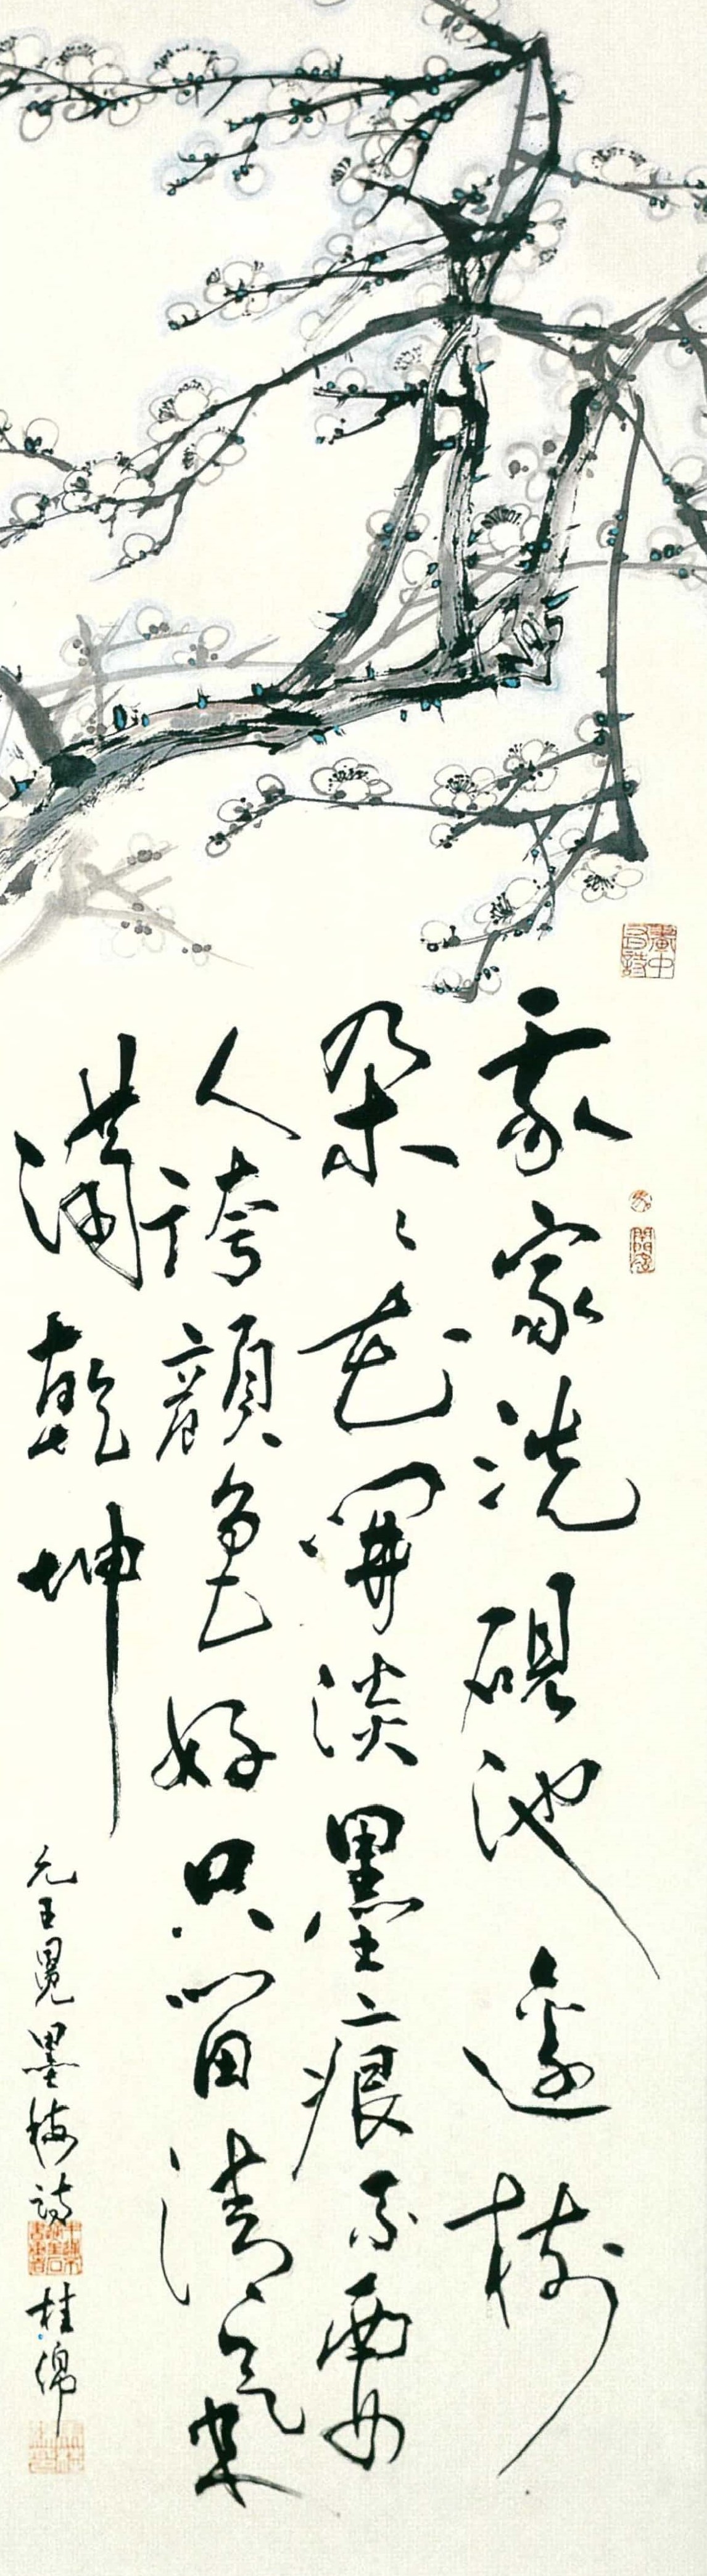 畫中有詩
我家洗硯池邊樹
朵々花開淡墨痕不要
人誇顏色好只留清氣
滿乾坤
元王冕墨梅詩 桂綿